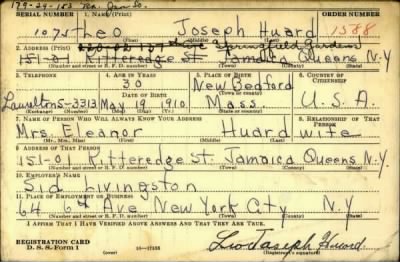 179-29-153 Rd. Jan So.
SERIAL NUMBER 1. NAME (Print) ORDER NUMBER
1075 Leo Joseph Huard 1588
2. ADDRESS (Print) Springfield Gardens
151-01 Ritteredge St. Jamaica Queens N.Y
(Number and street or R. F. D. number) (Town) (County) (State)
3. TELEPHONE 4. AGE IN YEARS 5. PLACE OF BIRTH 6. COUNTRY OF CITIZENSHIP
30 New Bedford
DATE OF BIRTH (Town or county)
Laurelton5-3313 May 19 1910 Mass. U.S.A.
(Mo.) (Day) (Yr.) (State or country)
7. NAME OF PERSON WHO WILL ALWAYS KNOW YOUR ADDRESS 8. RELATIONSHIP OF THAT PERSON
Mrs. Eleanor Huard wife
(Mr., Mrs., Miss) (First) (Middle) (Last)
9. ADDRESS OF THAT PERSON
151-01 Ritteredge St. Jamaica Queens N.Y.
(Number and street or R. F. D. number) (Town) (County) (State)
10. EMPLOYER'S NAME
Sid Livingston
11. PLACE OF EMPLOYMENT OR BUSINESS
64 6th Ave New York City N.Y
(Number and street or R. F. D. number) (Town) (County) (State)
I AFFIRM THAT I HAVE VERIFIED ABOVE ANSWERS AND THAT THEY ARE TRUE.
REGISTRATION CARD
D. S. S. Form 1 (over) 16-17105 Leo Joseph Huard
(Registrant's signature)